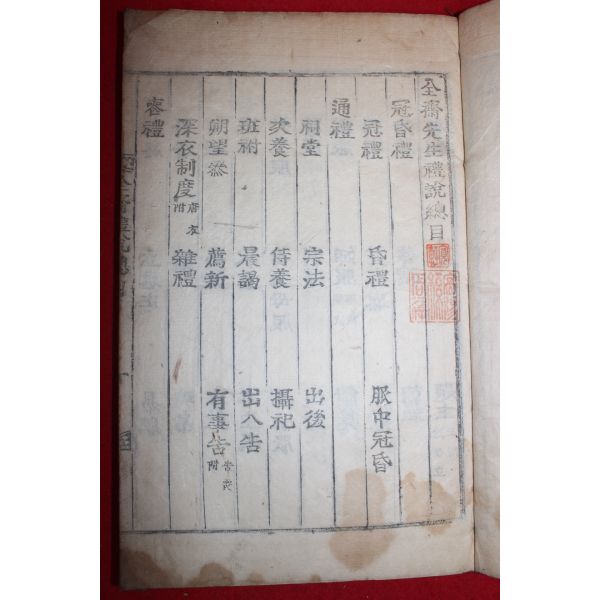 全齋先生禮說總目
冠昏禮
冠禮 昏禮 服中冠昏
通禮
祠堂 宗法 出後
次養 侍養 攝祀
班祔 晨謁 出入告
朔望叅 薦新 有事告 喪附
深衣制度 附 雜禮
喪禮